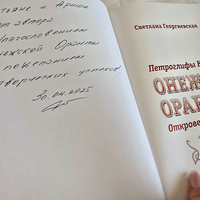 ...тьяне и Арише
от автора
с благословением
...нежской Оранты
с пожеланием
творческих успехов
30.04.2025
Светлана Георгиевская
Петроглифы
ОНЕЖ
ОРАН
Открове